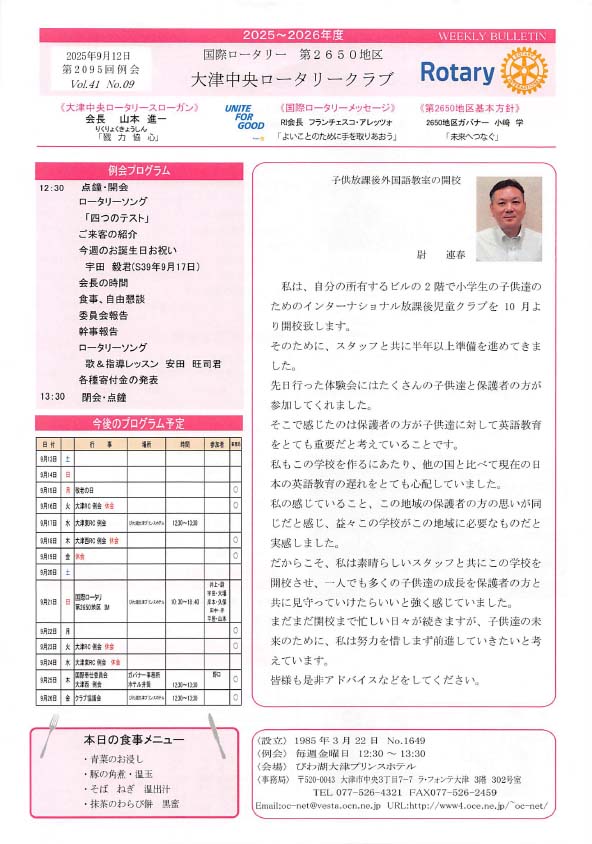 2025～2026年度
WEEKLY BULLETIN
2025年9月12日
第2095回例会
Vol.41 No.09
国際ロータリー 第2650地区
大津中央ロータリークラブ
Rotary
《大津中央ロータリースローガン》
会長 山本 進一
りくりょくきょうしん
「戮力協心」
UNITE
FOR
GOOD
《国際ロータリーメッセージ》
RI会長 フランチェスコ・アレッツォ
「よいことのために手を取りあおう」
《第2650地区基本方針》
2650地区ガバナー 小﨑 学
「未来へつなぐ」
例会プログラム
12:30 点鐘・開会
ロータリーソング
「四つのテスト」
ご来客の紹介
今週のお誕生日お祝い
宇田 毅君(S39年9月17日)
会長の時間
食事、自由懇談
委員会報告
幹事報告
ロータリーソング
歌&指導レッスン 安田 旺司君
各種寄付金の発表
13:30 閉会・点鐘
今後のプログラム予定
日付 行事 場所 時間 参加者
9月13日 土
9月14日 日
9月15日 月 敬老の日 ○
9月16日 火 大津RC 例会 休会 ○
9月17日 水 大津東RC 例会 びわ湖大津プリンスホテル 12:30～13:30
9月18日 木 大津西RC 例会 休会 ○
9月19日 金 休会 ○
9月20日 土
9月21日 日 国際ロータリー 第2650地区 IM びわ湖大津プリンスホテル
9月22日 月 ○
9月23日 火 大津RC 例会 休会 ○
9月24日 水 大津東RC 例会 休会
9月25日 木 国際奉仕委員会 ガバナー事務所 野口 ○
大津西 例会 ホテル井筒 12:30～13:30
9月26日 金 クラブ協議会 びわ湖大津プリンスホテル 12:30～13:30 ○
子供放課後外国語教室の開校
尉 連春
私は、自分の所有するビルの2階で小学生の子供達の
ためのインターナショナル放課後児童クラブを10月よ
り開校致します。
そのために、スタッフと共に半年以上準備を進めてきま
した。
先日行った体験会にはたくさんの子供達と保護者の方が
参加してくれました。
そこで感じたのは保護者の方が子供達に対して英語教育
をとても重要だと考えていることです。
私もこの学校を作るにあたり、他の国と比べて現在の日
本の英語教育の遅れをとても心配していました。
私の感じていること、この地域の保護者の方の思いが同
じだと感じ、益々この学校がこの地域に必要なものだと
実感しました。
だからこそ、私は素晴らしいスタッフと共にこの学校を
開校させ、一人でも多くの子供達の成長を保護者の方と
共に見守っていけたらいいと強く感じていました。
まだまだ開校まで忙しい日々が続きますが、子供達の未
来のために、私は努力を惜しまず前進していきたいと考
えています。
皆様も是非アドバイスなどをしてください。
本日の食事メニュー
・青菜のお浸し
・豚の角煮・温玉
・そば ねぎ 温出汁
・抹茶のわらび餅 黒蜜
〈設立〉 1985年3月22日 No.1649
〈例会〉 毎週金曜日 12:30～13:30
〈会場〉 びわ湖大津プリンスホテル
〈事務局〉 〒520-0043 大津市中央3丁目7-7 ラ・フォンテ大津 3階 302号室
TEL 077-526-4321 FAX077-526-2459
Email:oc-net@vesta.ocn.ne.jp URL:http://www4.oce.ne.jp/~oc-net/